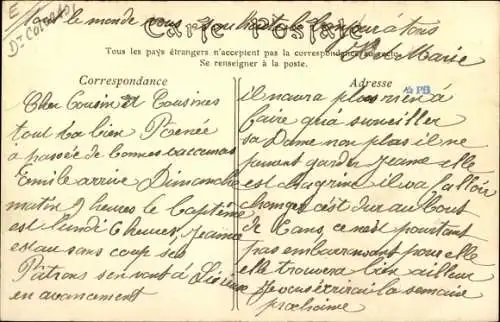 E
Dr Colorado
tout le monde vous souhaite le bonjour à tous
Carte Postale
Tous les pays étrangers n'acceptent pas la correspondance au recto.
Se renseigner à la poste.
Marie
Correspondance
Cher Cousin et Cousines
tout va bien Renée
à passée de bonnes vaccances
Emile arrive Dimanche
matin 9 heures le Capitène
est lundi 6 heures Jeanne
est au sans coup ses
Patrons s'en vont à
en avancement
Adresse
PB
il naura plas rien à
faire qua surveiller
sa Dame non plas il ne
peuvent garder Jeanne elle
est chagriné il va falloir
changer c'est dur au bout
de 6 ans, ce nest pourtant
pas embarrassant pour elle
elle trouvera bien ailleur
Je vous écrirai la semaine
prochaine